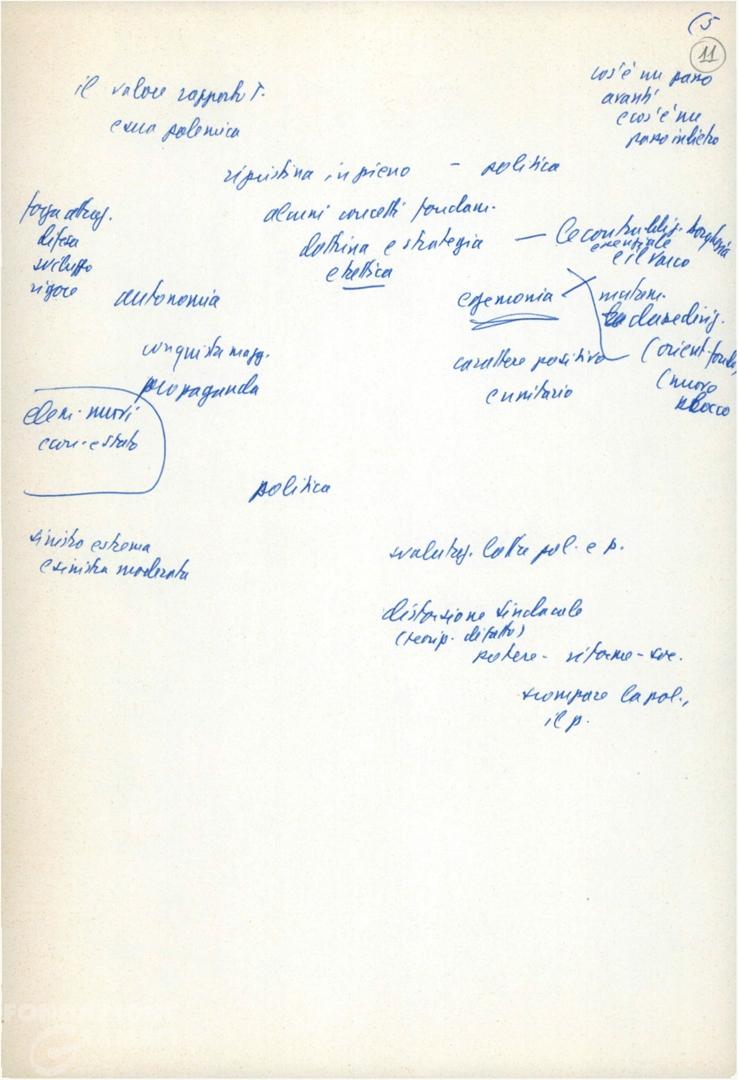 (5
11
cos'è un passo
avanti
e cos'è un
passo indietro
il valore rapporto T.
e sua polemica
ripristina in pieno - politica
alcuni concetti fondam.
dottrina e strategia
e tattica
forza attraz.
difesa
sviluppo
rigore
autonomia
conquista magg.
propaganda
le contraddiz. borghesia
essenziale
e il varco
egemonia
mutam.
classe dirig.
(orient. fond.
(nuovo
blocco
carattere positivo
e unitario
elem. nuovi
econ. e stato
politica
sinistra estrema
e sinistra moderata
svalutaz. lotta pol. e p.
distorsione sindacale
potere - riforme - soc.
scompare la pol.,
il p.
FONDAZIONE